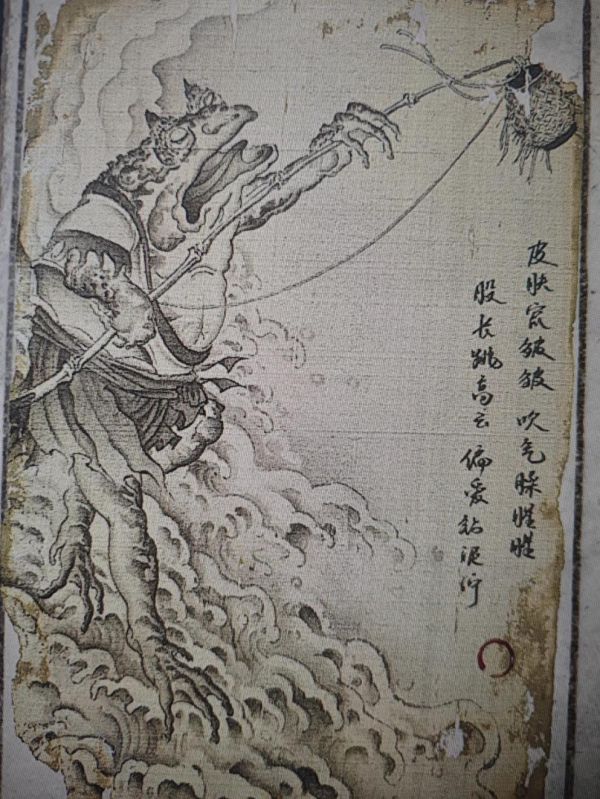 皮肤皱皱 吹气臊腥腥
股长跳高云 偏爱钻泥泞